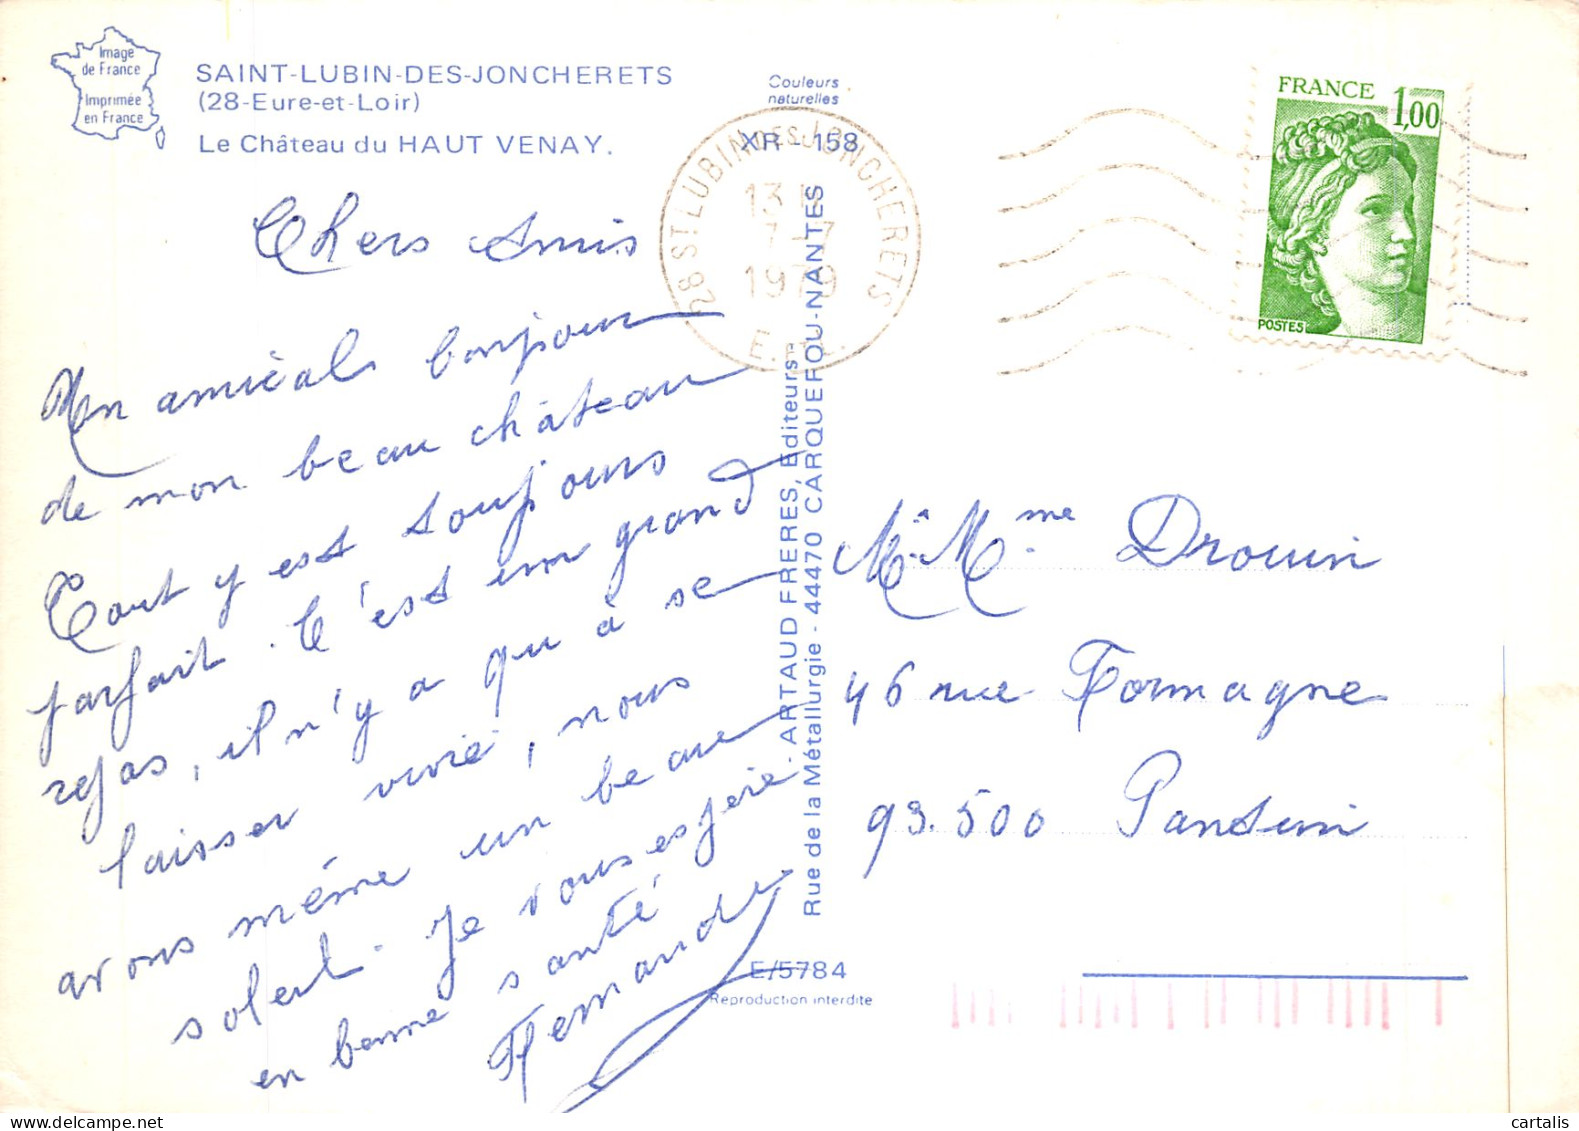 Image
de France
Imprimée
en France
SAINT-LUBIN-DES-JONCHERETS
(28-Eure-et-Loir)
Le Château du HAUT VENAY.
Couleurs
naturelles
XR - 158
28 ST LUBIN DES JONCHERETS
13 H
7-7
1979
E.-&-L.
FRANCE 1,00
POSTES
Chers Amis
Mon amical bonjour
de mon beau château
Tout y est toujours
parfait. C'est un grand
repas, il n'y a qu'à se
laisser vivre, nous
avons même un beau
soleil. Je vous espère
en bonne santé
Fernande
ARTAUD FRERES, Editeurs -
Rue de la Métallurgie - 44470 CARQUEFOU-NANTES
E/5784
Reproduction interdite
M. Mme Drouin
46 rue Formagne
93.500 Pantin
cartalis
www.delcampe.net